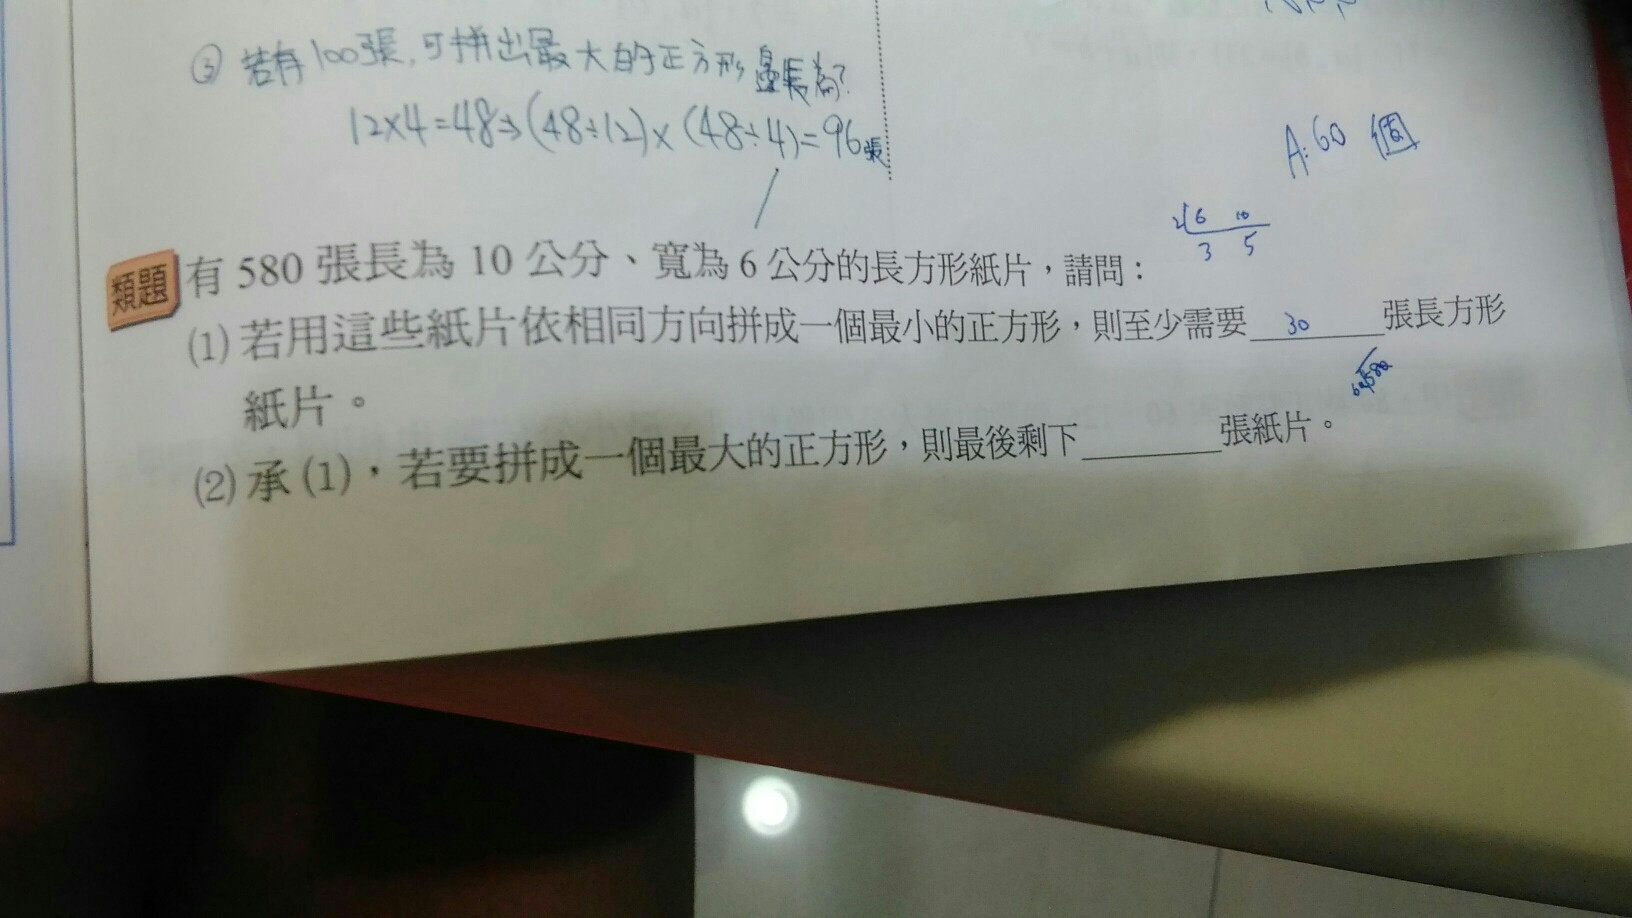 ③ 若有100張,可拼出最大的正方形邊長為?
12×4=48→(48÷12)×(48÷4)=96張
A:60 個
2 6 10
3 5
類題 有 580 張長為 10 公分、寬為 6 公分的長方形紙片,請問:
(1) 若用這些紙片依相同方向拼成一個最小的正方形,則至少需要 30 張長方形
紙片。
(2) 承 (1),若要拼成一個最大的正方形,則最後剩下______張紙片。